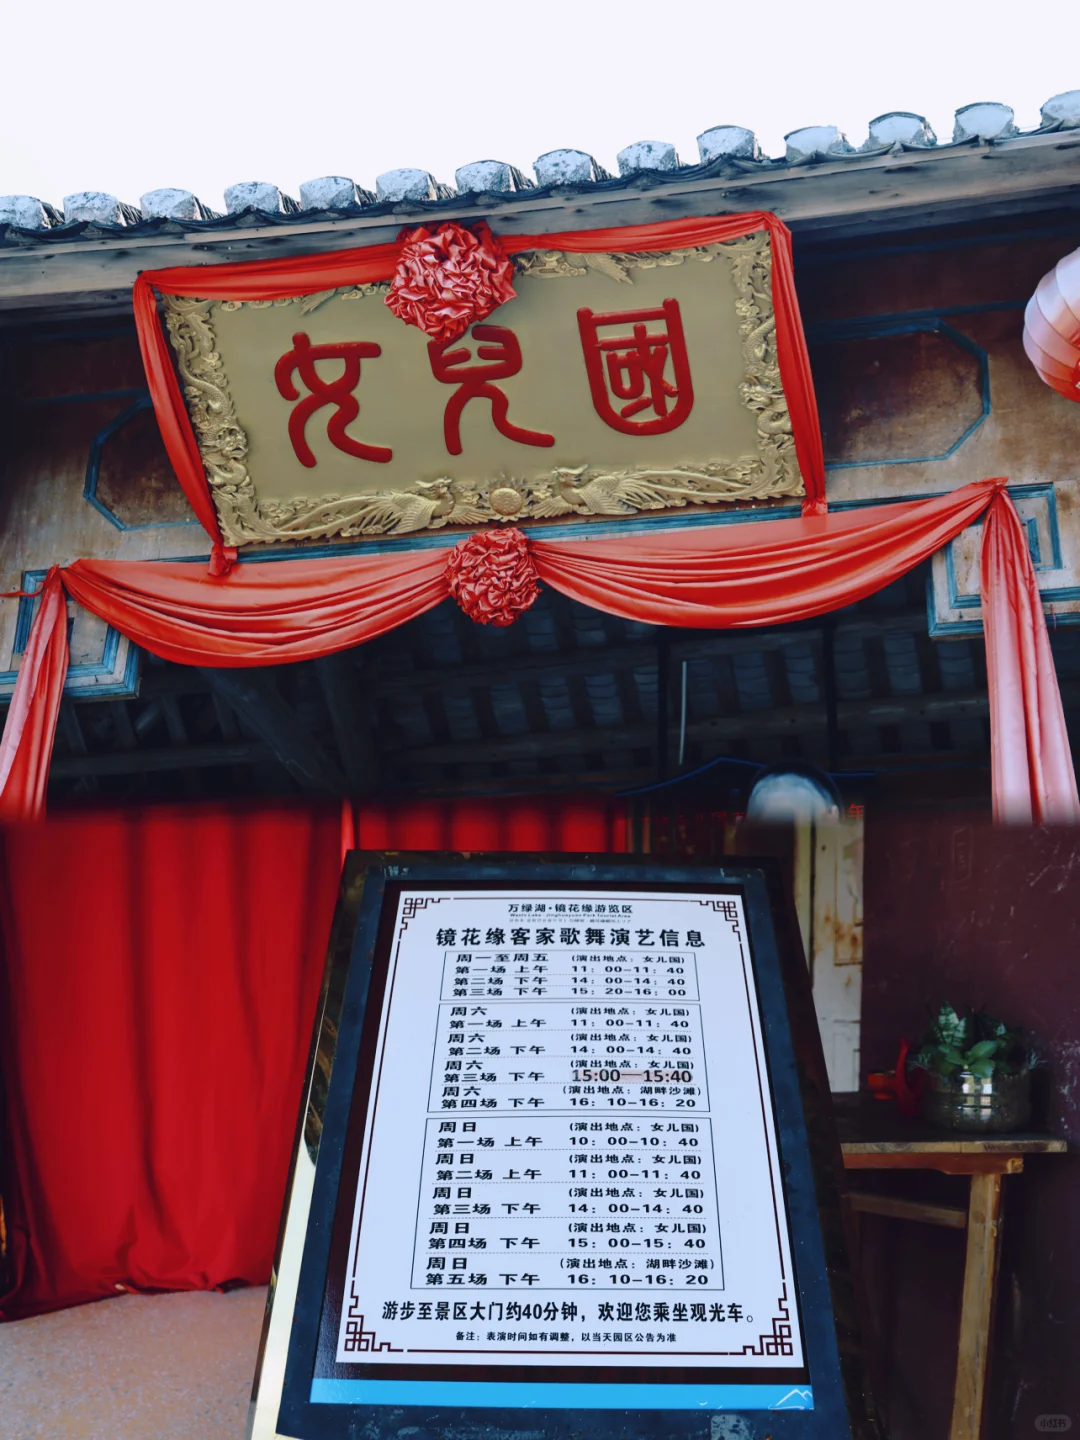 女兒國
万绿湖·镜花缘游览区
镜花缘客家歌舞演艺信息
周一至周五 (演出地点：女儿国)
第一场 上午 11：00-11：40
第二场 下午 14：00-14：40
第三场 下午 15：20-16：00
周六 (演出地点：女儿国)
第一场 上午 11：00-11：40
周六 (演出地点：女儿国)
第二场 下午 14：00-14：40
周六 (演出地点：女儿国)
第三场 下午 15:00—15:40
周六 (演出地点：湖畔沙滩)
第四场 下午 16：10-16：20
周日 (演出地点：女儿国)
第一场 上午 10：00-10：40
周日 (演出地点：女儿国)
第二场 上午 11：00-11：40
周日 (演出地点：女儿国)
第三场 下午 14：00-14：40
周日 (演出地点：女儿国)
第四场 下午 15：00-15：40
周日 (演出地点：湖畔沙滩)
第五场 下午 16：10-16：20
游步至景区大门约40分钟，欢迎您乘坐观光车。
备注：表演时间如有调整，以当天园区公告为准
小红书